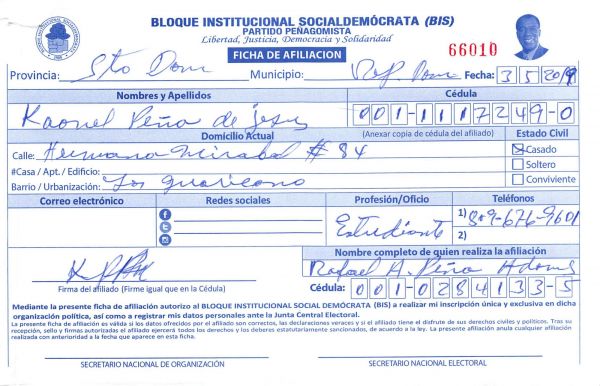 BLOQUE INSTITUCIONAL SOCIALDEMÓCRATA (BIS)
PARTIDO PEÑAGOMISTA
Libertad, Justicia, Democracia y Solidaridad
FICHA DE AFILIACION
66010
Provincia: Sto Dom Municipio: Rep. Dom Fecha: 3/5/2019
Nombres y Apellidos
Cédula
Kaonel Peña de jesus
001-1117249-0
Domicilio Actual
(Anexar copia de cédula del afiliado)
Estado Civil
Calle: Hermana Mirabal # 84
Casado
#Casa / Apt. / Edificio:
Soltero
Barrio / Urbanización: Los guaricano
Conviviente
Correo electrónico
Redes sociales
Profesión/Oficio
Teléfonos
Estudiante
1) 809-676-9601
2)
Nombre completo de quien realiza la afiliación
Rafael A. Peña
Firma del afiliado (Firme igual que en la Cédula)
Cédula: 001-0284133-5
Mediante la presente ficha de afiliación autorizo al BLOQUE INSTITUCIONAL SOCIAL DEMÓCRATA (BIS) a realizar mi inscripción única y exclusiva en dicha
organización política, así como a registrar mis datos personales ante la Junta Central Electoral.
La presente ficha de afiliación es válida si los datos ofrecidos por el afiliado son correctos, las declaraciones veraces y si el afiliado tiene el disfrute de sus derechos civiles y políticos. Tras su
recepción, sello y firmas autorizadas el afiliado ejercerá todos los derechos y los deberes estatutariamente sancionados, de acuerdo a la ley. La presente afiliación anula cualquier afiliación
realizada con anterioridad a la fecha que aparece en esta ficha.
SECRETARIO NACIONAL DE ORGANIZACIÓN
SECRETARIO NACIONAL ELECTORAL